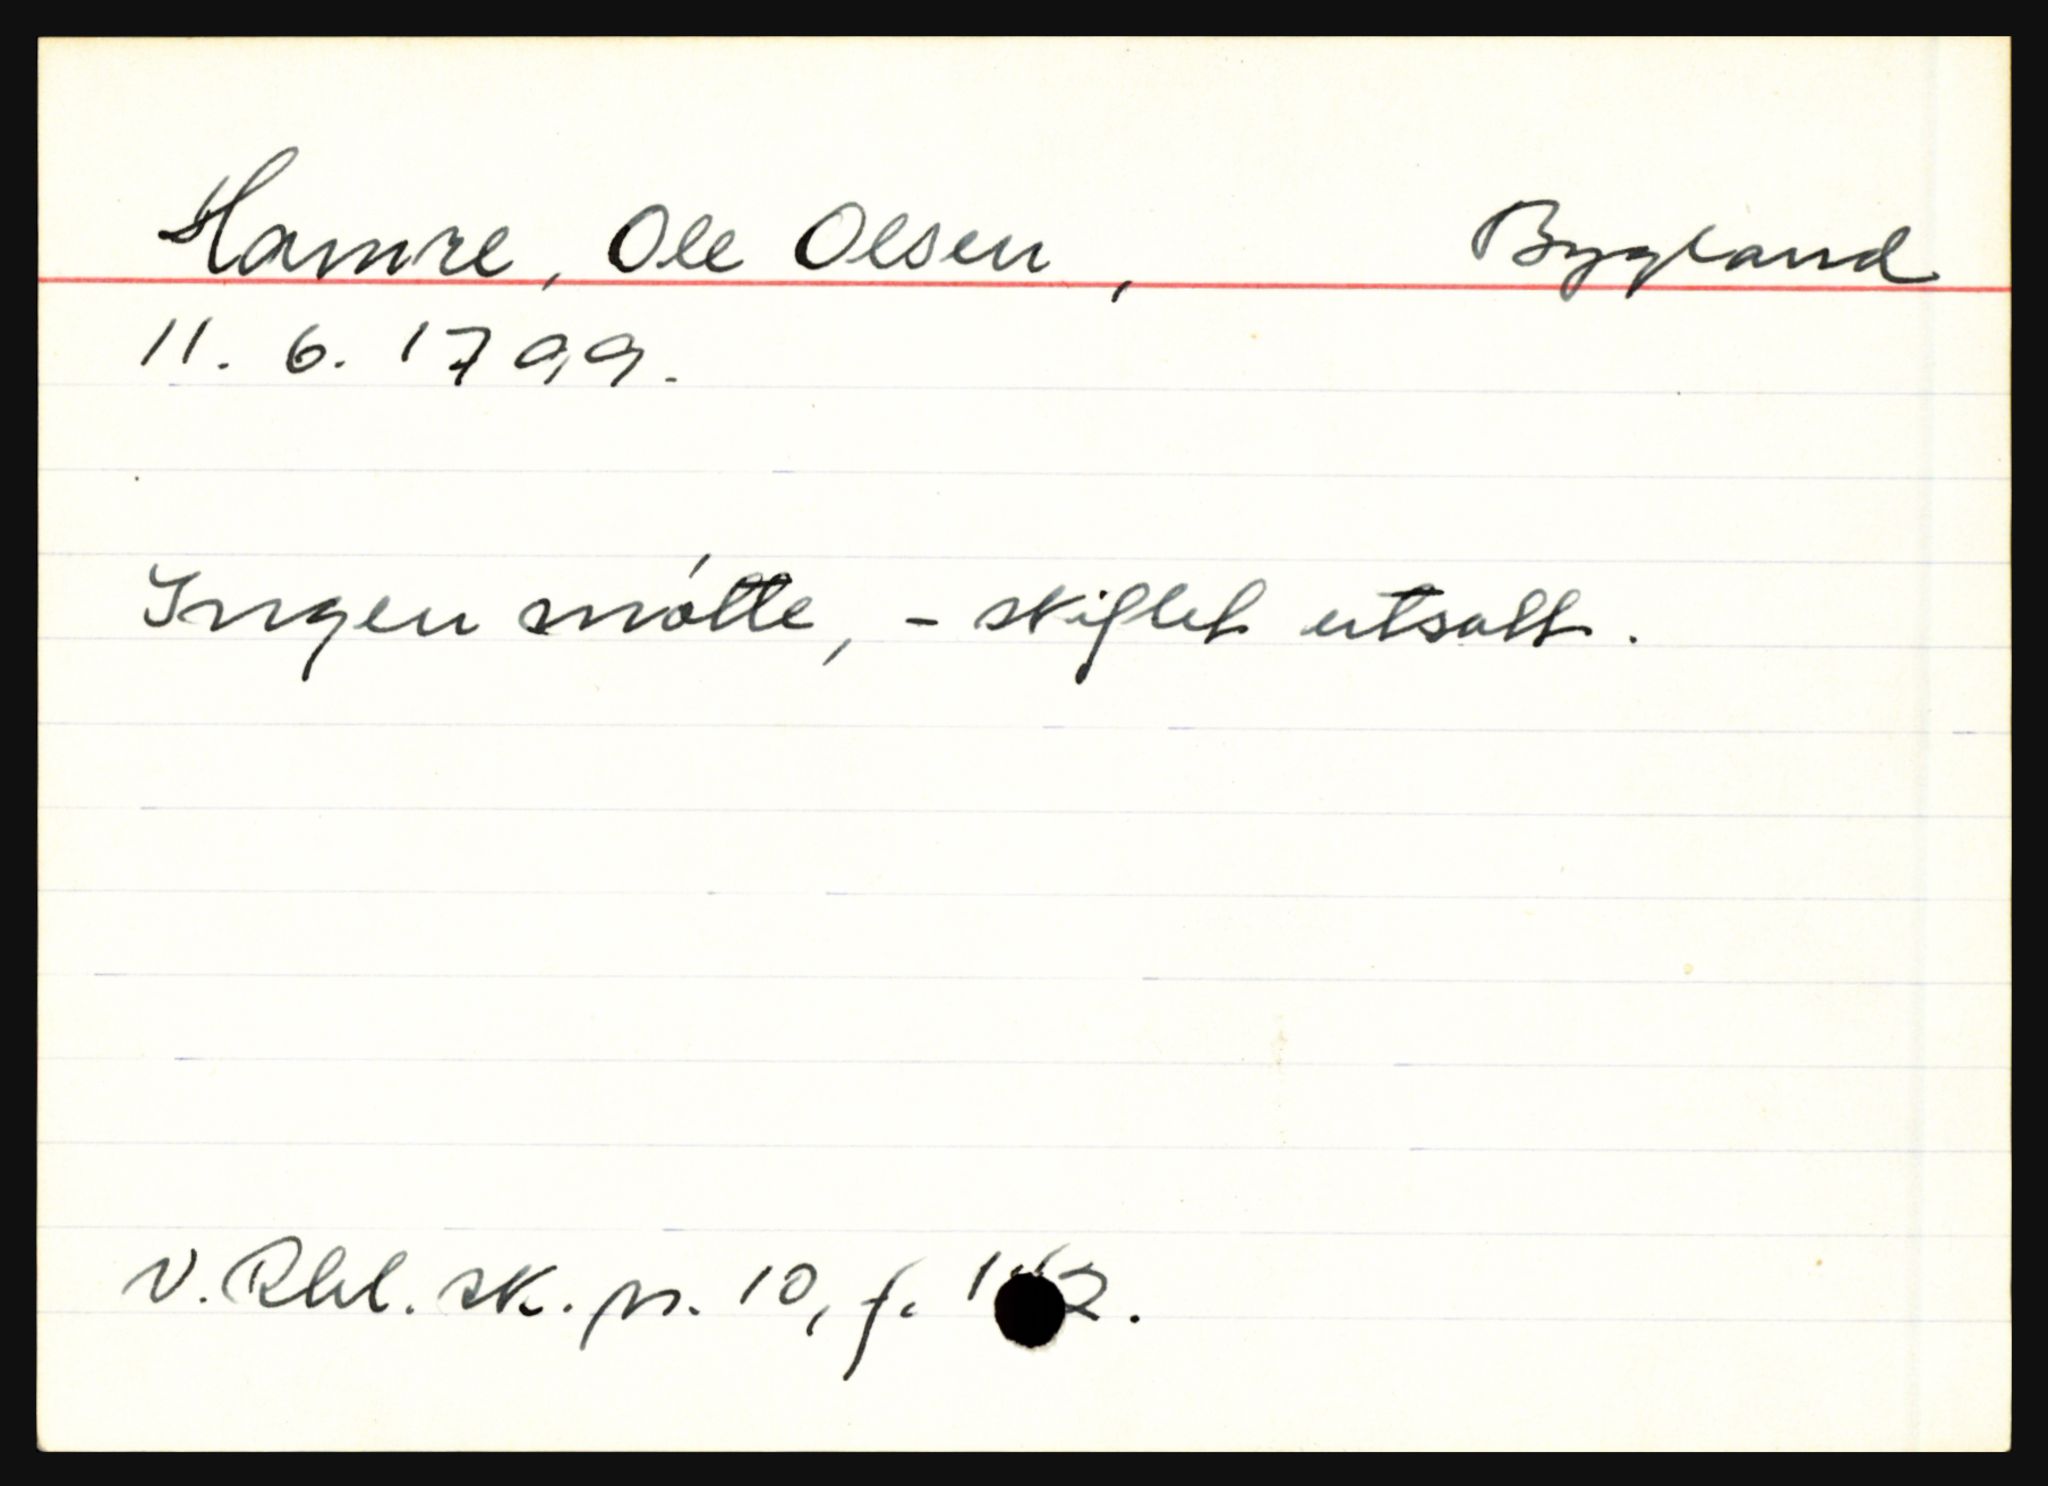 Hamre, Ole Olsen, Bygland
11. 6. 1799.
Ingen møtte, - skiftet utsatt.
V. Rbl. sk. pr. 10, f.